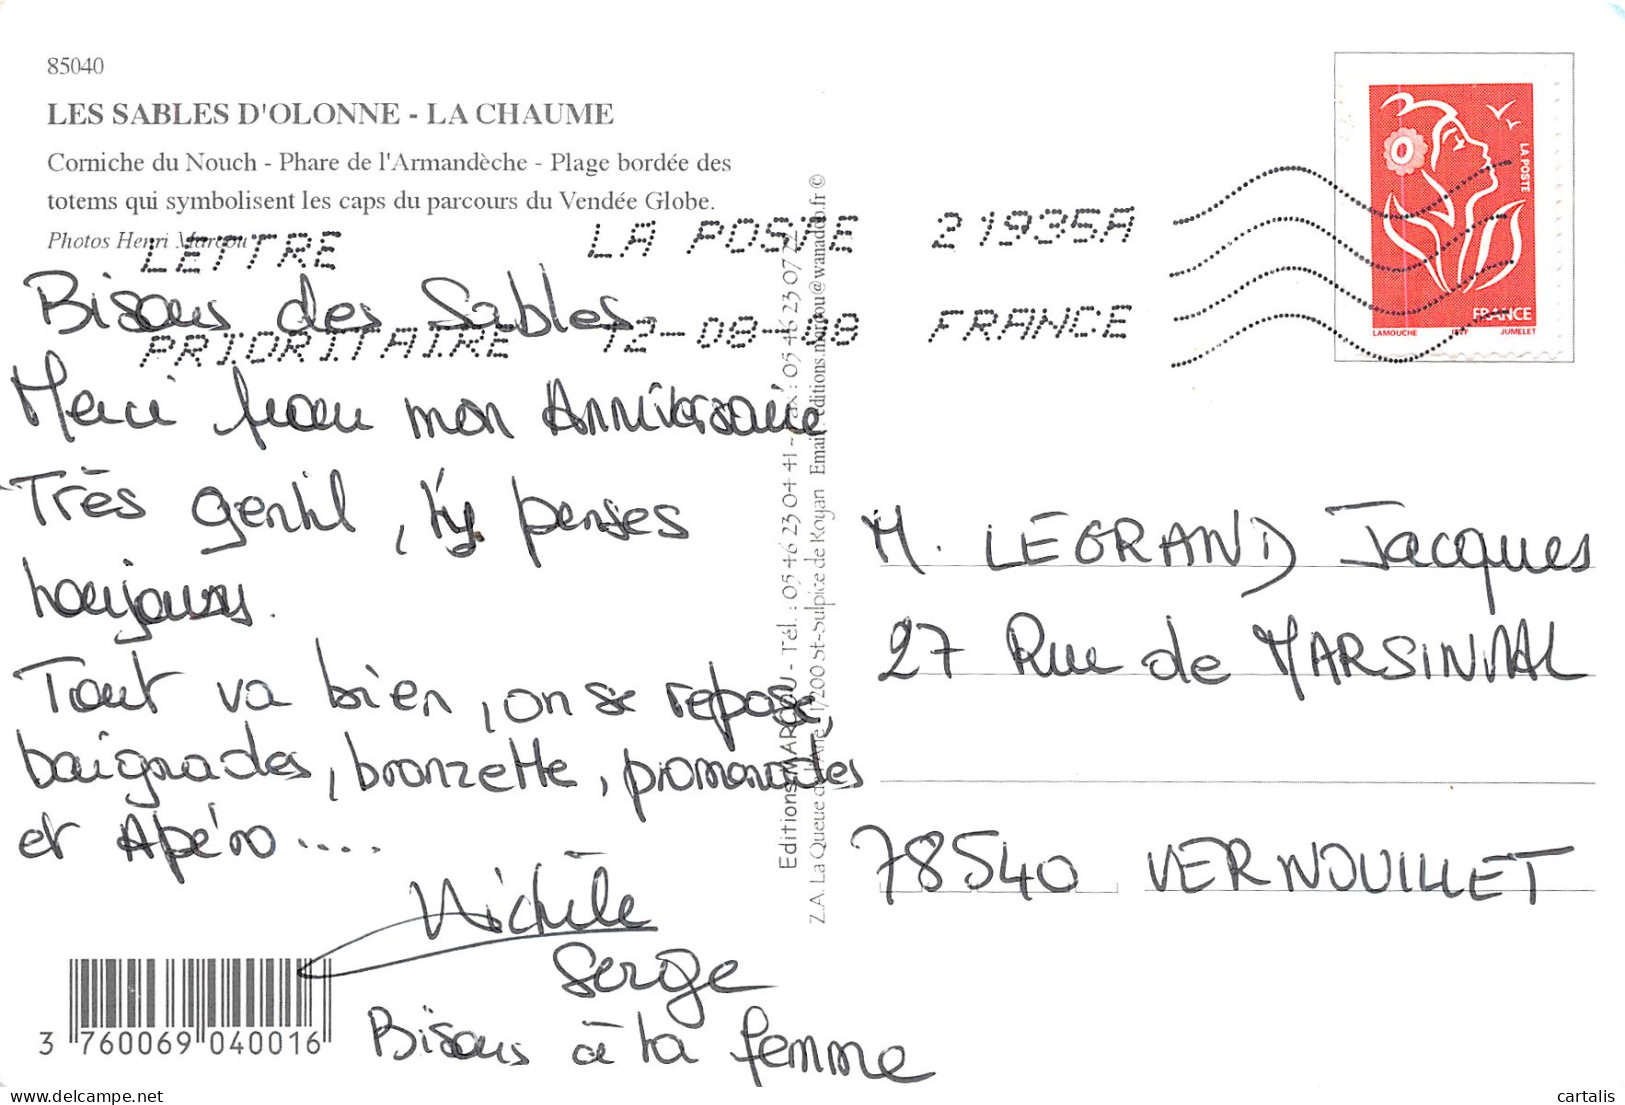 85040
LES SABLES D'OLONNE - LA CHAUME
Corniche du Nouch - Phare de l'Armandèche - Plage bordée des
totems qui symbolisent les caps du parcours du Vendée Globe.
Photos Henri Marcou
LETTRE
PRIORITAIRE
LA POSTE 21935A
12-08-08 FRANCE
LA POSTE
FRANCE
LAMOUCHE ITVF JUMELET
Bisous des Sables.
Merci pour mon Anniversaire
Très gentil, t'y penses
toujours.
Tout va bien, on se repose,
baignades, bronzette, promenades
et Apéro ....
Michèle
Serge
Bisous à ta femme
Editions MARCOU - Tél. : 05 46 23 04 41 - Fax : 05 46 23 07 72
Z.A. La Queue de l'Ane - 17200 St-Sulpice de Royan Email : editions.marcou@wanadoo.fr ©
M. LEGRAND Jacques
27 Rue de MARSINVAL
78540 VERNOUILLET
3 760069 040016
cartalis